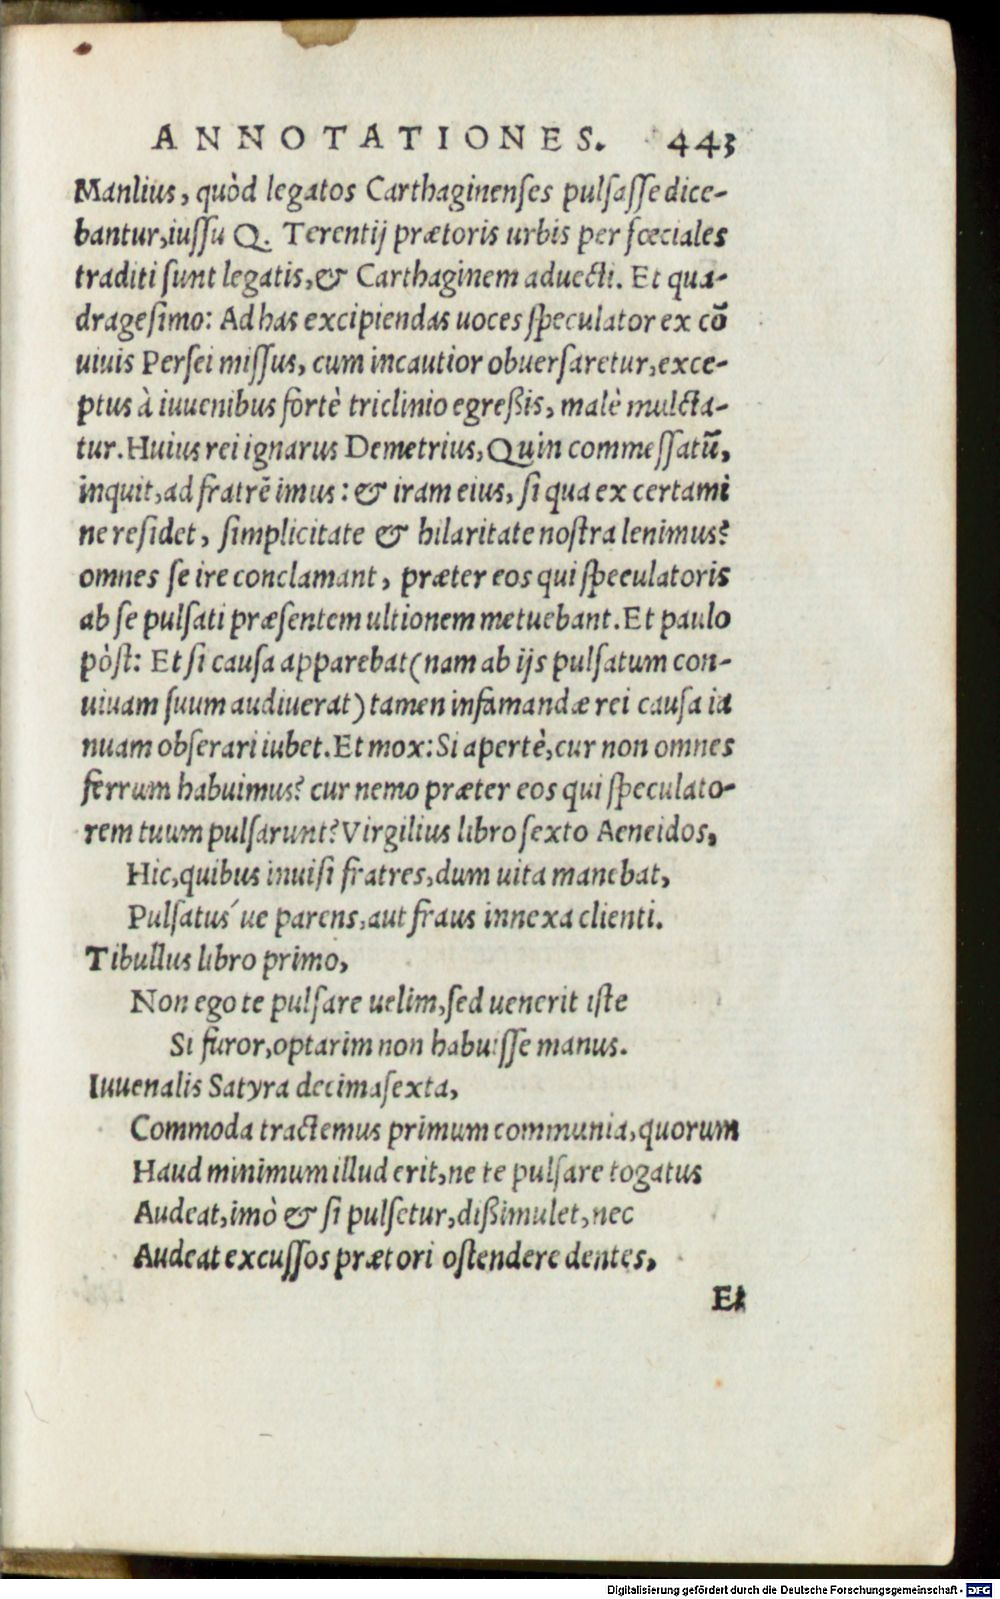 ANNOTATIONES. 443
Manlius, quòd legatos Carthaginenses pulsasse dice-
bantur, iussu Q. Terentij prætoris urbis per fœciales
traditi sunt legatis, & Carthaginem aduecti. Et qua-
dragesimo: Ad has excipiendas uoces speculator ex cō
uiuis Persei missus, cum incautior obuersaretur, exce-
ptus à iuuenibus fortè triclinio egreßis, malè mulcta-
tur. Huius rei ignarus Demetrius, Quin commessatū,
inquit, ad fratrē imus: & iram eius, si qua ex certami
ne residet, simplicitate & hilaritate nostra lenimus?
omnes se ire conclamant, præter eos qui speculatoris
ab se pulsati præsentem ultionem metuebant. Et paulo
pòst: Et si causa apparebat (nam ab ijs pulsatum con-
uiuam suum audiuerat) tamen infamandæ rei causa ia
nuam obserari iubet. Et mox: Si apertè, cur non omnes
ferrum habuimus? cur nemo præter eos qui speculato-
rem tuum pulsarunt? Virgilius libro sexto Aeneidos,
Hic, quibus inuisi fratres, dum uita manebat,
Pulsatus´ue parens, aut fraus innexa clienti.
Tibullus libro primo,
Non ego te pulsare uelim, sed uenerit iste
Si furor, optarim non habuisse manus.
Iuuenalis Satyra decimasexta,
Commoda tractemus primum communia, quorum
Haud minimum illud erit, ne te pulsare togatus
Audeat, imò & si pulsetur, dißimulet, nec
Audeat excussos prætori ostendere dentes,
Et
Digitalisierung gefördert durch die Deutsche Forschungsgemeinschaft - DFG